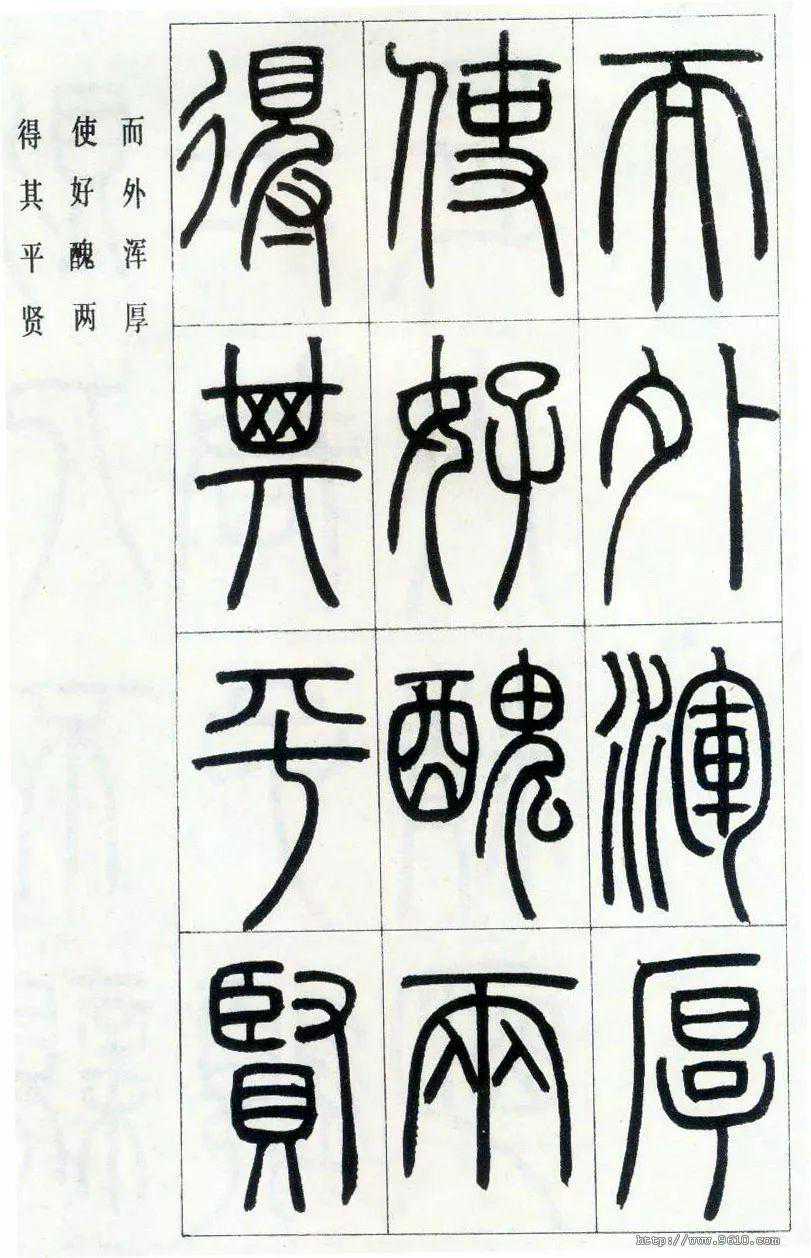 而外渾厚
使好醜兩
得其平賢
而外浑厚
使好醜两
得其平贤
http://www.9610.com